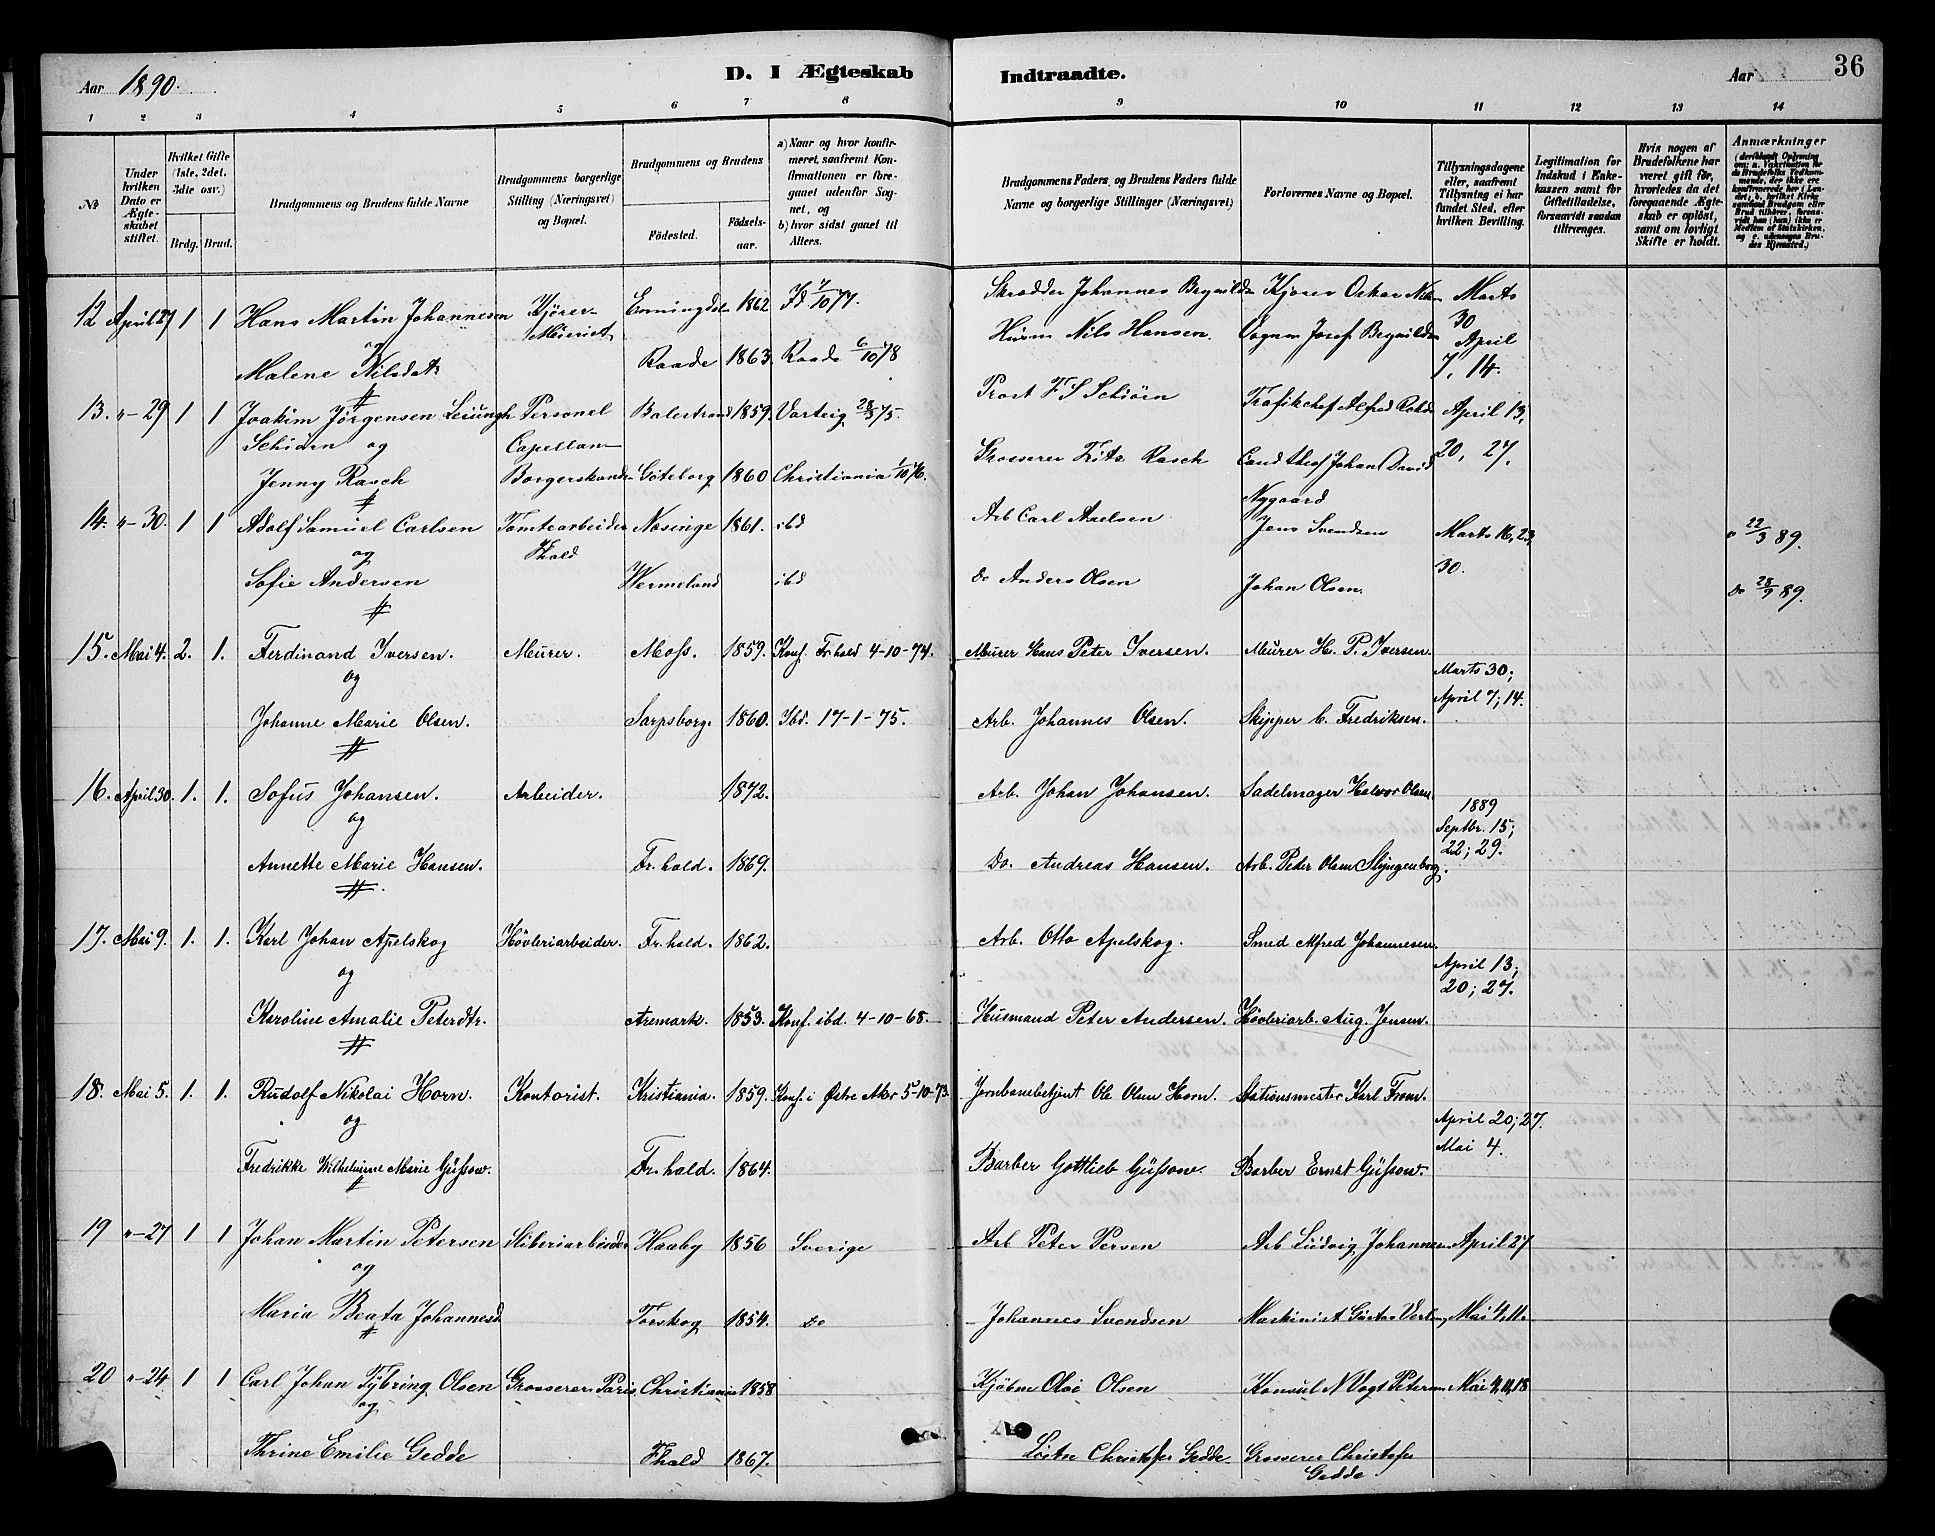 Aar 1890. D. I Ægteskab Indtraadte. Aar 36
1 2 3 4 5 6 7 8 9 10 11 12 13 14
№
Under hvilken Dato er Ægteskabet stiftet.
Hvilket Gifte (1ste, 2det, 3die osv.)
Brdg. Brud.
Brudgommens og Brudens fulde Navne
Brudgommens borgerlige Stilling (Næringsvei) og Bopæl.
Brudgommens og Brudens
Fødested. Fødselsaar.
a) Naar og hvor konfirmeret, saafremt Konfirmationen er foregaaet udenfor Sognet, og
b) hvor sidst gaaet til Alters.
Brudgommens Faders, og Brudens Faders fulde Navne og borgerlige Stillinger (Næringsvei)
Forlovernes Navne og Bopæl.
Tillysningsdagene eller, saafremt Tillysning ei har fundet Sted, efter hvilken Bevilling.
Legitimation for Indskud i Enkekassen samt for Giftetilladelse, forsaavidt saadan tiltrænges.
Hvis nogen af Brudefolkene har været gift før, hvorledes da det foregaaende Ægteskab er opløst, samt om lovligt Skifte er holdt.
Anmærkninger
12 April 27 1 1 Hans Martin Johannesen Kjører 1862 Skrædder Johannes Marts 30
og
Malene Nilsdatr Raade 1863. Raade 6/10 78 Nils Hansen. April 7, 14.
13. "-29 1 1 Joakim Jörgensen Personel Balestrand 1859. Varteig 28/3 75. Prost F S Schiörn Trafikchef Alfred April 13,
Schiörn og Capellan
Jenny Rasch Borgerskand Göteborg 1860 Christiania 1/10 76. Grosserer Rasch Cand theol Johan David Nygaard 20, 27.
14. "-30. 1 1 Adolf Samuel Carlsen Tomtearbeider Nosinge 1861. ibd Arb Carl Axelsen Jens Svendsen Marts 16, 23, 22/3 89.
og Fhald
Sofie Andersen Wermeland ibd Do Anders Olsen Johan Olsen. 30. Do 28/9 89.
15. Mai 4. 2. 1. Ferdinand Iversen. Murer. Moss. 1859. Konf. Fr.hald 4-10-74. Murer Hans Peter Iversen. Murer H. P. Iversen. Marts 30;
og
Johanne Marie Olsen. Sarpsborg. 1860. Ibd. 17-1-75. Arb. Johannes Olsen. Skipper C. Fredriksen. April 7; 14.
16. April 30. 1. 1. Sofus Johansen. Arbeider. 1872. Arb. Johan Johansen. Sadelmager Halvor Olsen. 1889
og
Annette Marie Hansen. Fr.hald. 1869. Do. Andreas Hansen. Arb. Peter Olsen Septbr. 15; 22; 29.
17. Mai 9. 1. 1. Karl Johan Apelskog Høvleriarbeider. Fr.hald. 1862. Arb. Otto Apelskog. Smed Alfred Johannesen. April 13;
og
Karoline Amalie Petersdtr. Aremark. 1853. Konf. ibd. 4-10-68. Husmand Peter Andersen. Høvleriarb. Aug. Jensen. 20; 27.
18. Mai 5. 1. 1. Rudolf Nikolai Horn. Kontorist. Kristiania. 1859. Konf. i Østre Aker 5-10-73. Jernbanebetjent Ole Olsen Horn. Stationsmester Karl From. April 20; 27.
og
Fredrikke Wilhelmine Marie Güssow. Fr.hald. 1864. Barber Gottlieb Güssow. Barber Ernst Güssow. Mai 4.
19 "-27 1 1 Johan Martin Petersen Sliberiarbeider Haaby 1856 Sverige Arb Peter Persen Arb Ludvig Johannesen April 27
og
Maria Beata Johannesd Torskog 1854. Do Johannes Svendsen Maskinist Gustav Mai 4, 11.
20 "-24 1 1 Carl Johan Tybring Olsen Grosserer Paris Christiania 1858 Kjøbm Olai Olsen Konsul N Vogt Petersen Mai 4, 11, 18
og
Thrine Emilie Gedde Fhald 1867. Løitn Christofer Gedde Grosserer Christofer Gedde